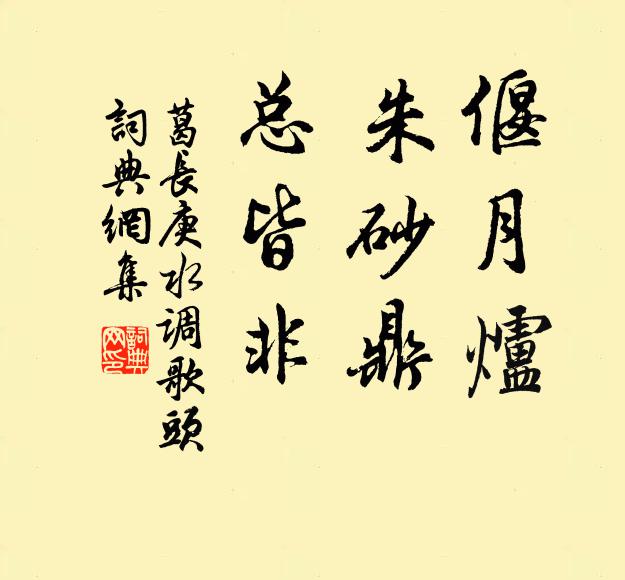 偃月爐
朱砂鼎
总皆非
葛長庚水调歌頭
詞典網集
詞典网印